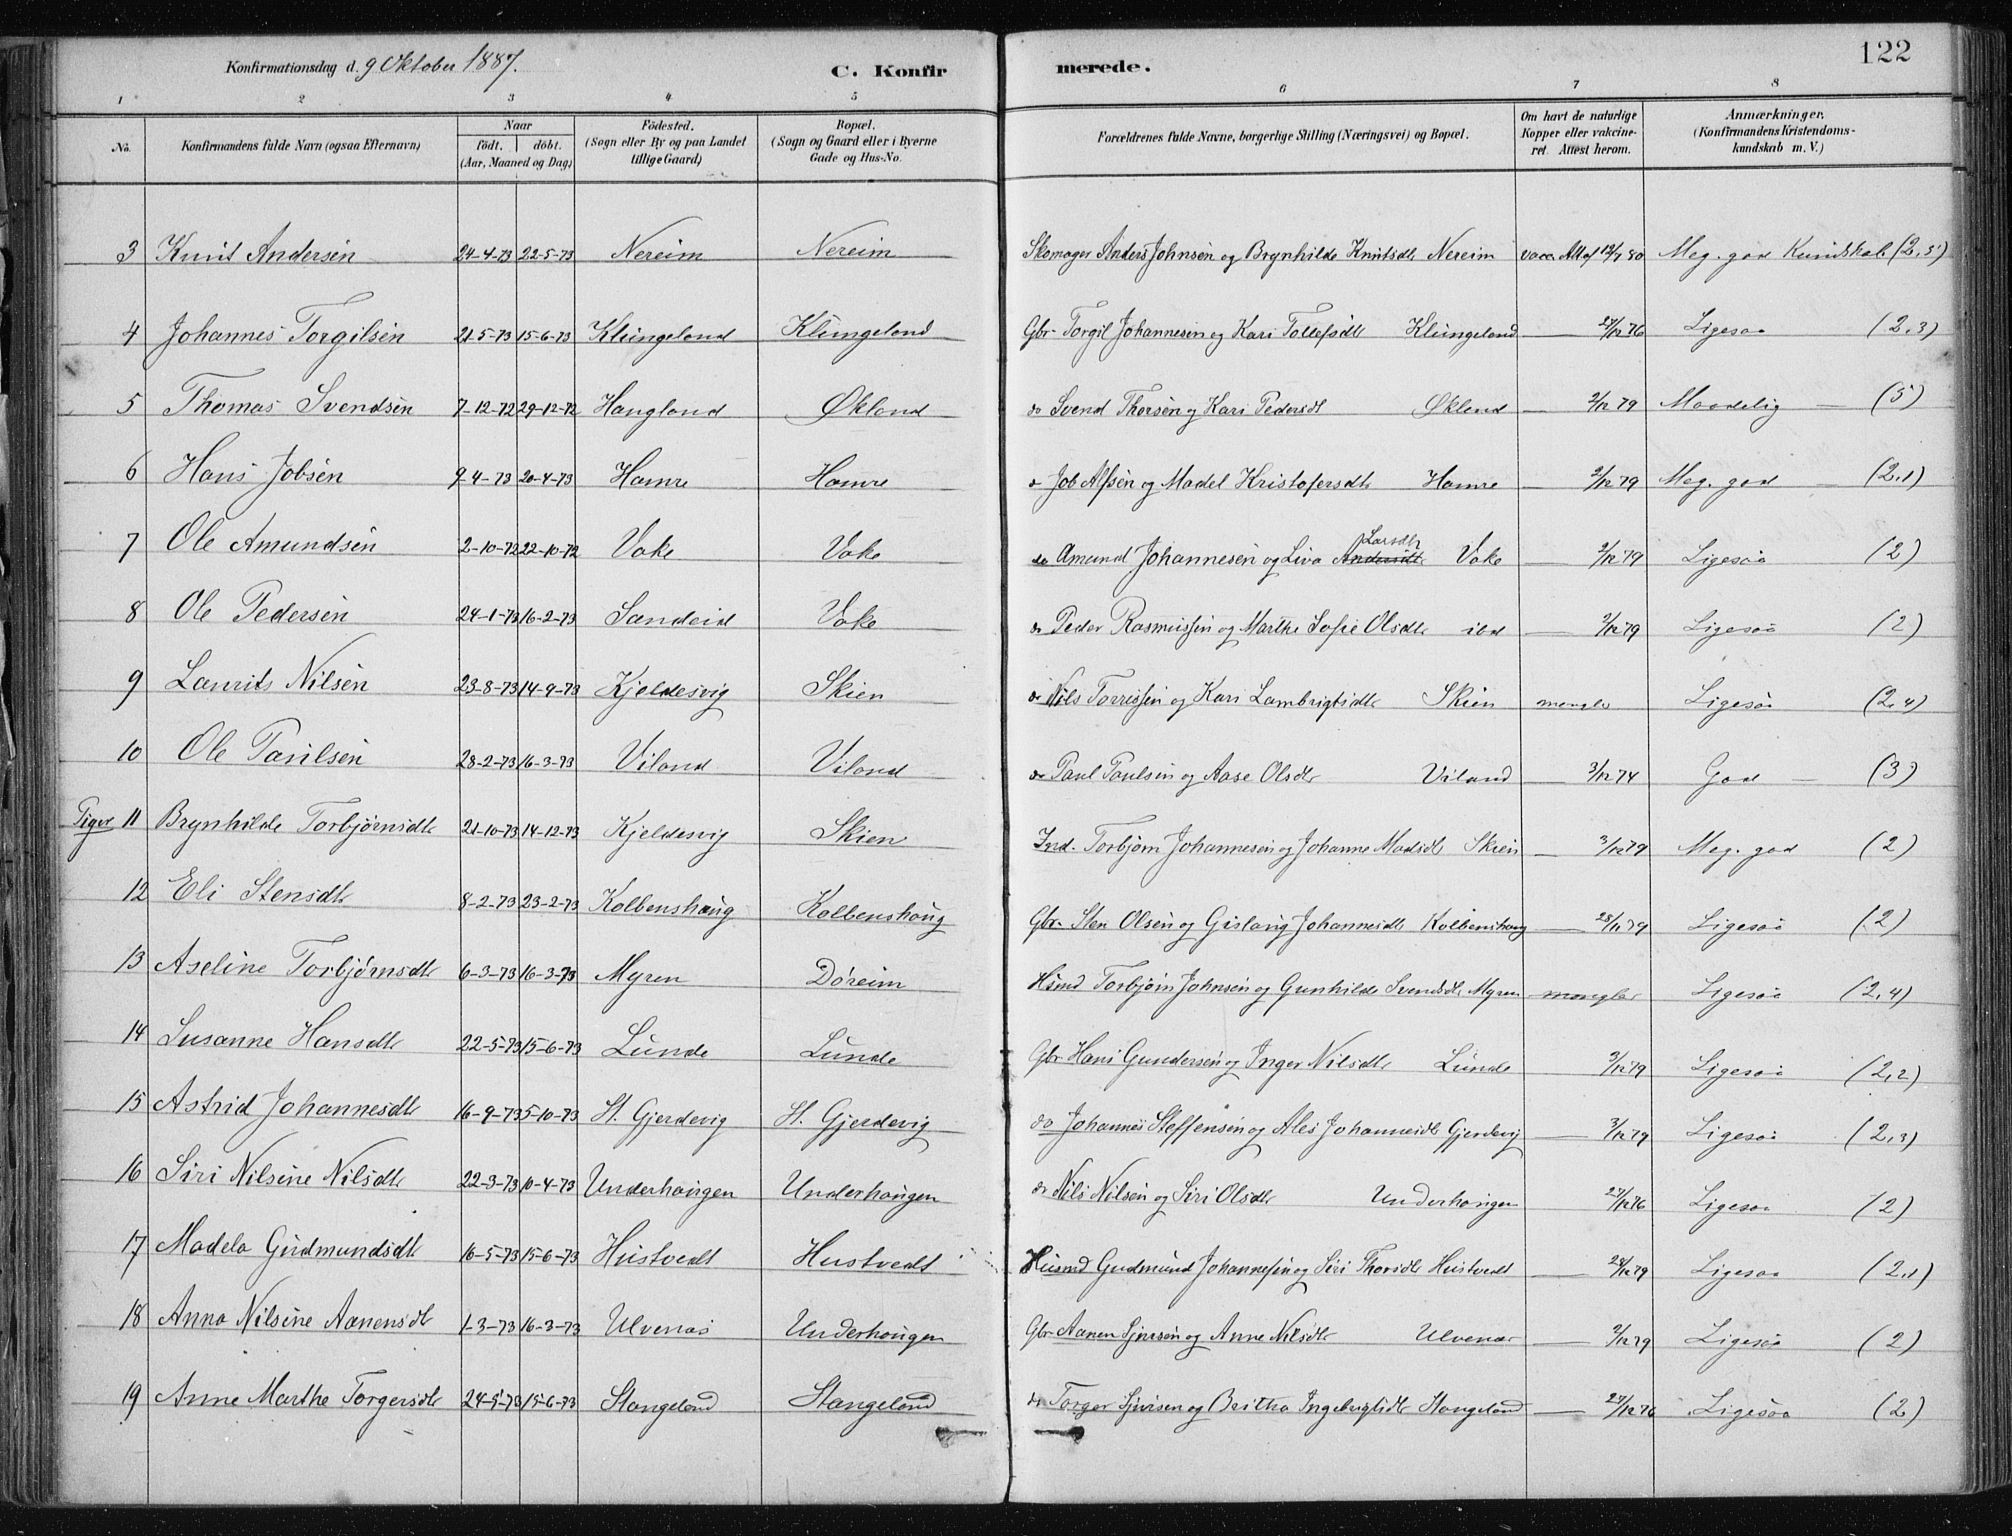 Konfirmationsdag d. 9 Oktober 1887.
C. Konfirmerede.
122
1 2 3 4 5 6 7 8
No. Konfirmandens fulde Navn (ogsaa Efternavn) Naar født. døbt. (Aar, Maaned og Dag) Fødested. (Sogn eller By og paa Landet tillige Gaard) Bopæl. (Sogn og Gaard eller i Byerne Gade og Hus-No. Forældrenes fulde Navne, borgerlige Stilling (Næringsvei) og Bopæl. Om havt de naturlige Kopper eller vakcineret. Attest herom. Anmærkninger. (Konfirmandens Kristendomskundskab m. V.)
3 Knut Andersen 24-4-73 22-5-73 Nereim Nereim Skomager Anders Johnsen og Brynhilde Knutsdtr Nereim vacc. Att af Meg. god Kundskab (2,5)
4 Johannes Torgilsen 21-5-73 15-6-73 Klungeland Klungeland Gbr. Torgil Johannesen og Kari Tollefsdtr Klungeland — 27/12 76 Ligesaa (2,3)
5 Thomas Svendsen 7-12-72 29-12-72 Haugland Økland do Svend Thorsen og Kari Pedersdt Økland — 2/12 79 Maadelig — (5)
6 Hans Jobsen 9-4-73 20-4-73 Hamre Hamre Job Alfsen og Madel Kristofersdtr Hamre — 2/12 79 Meg. god — (2,1)
7 Ole Amundsen 2-10-72 22-10-72 Vake Vake do Amund Johannesen og Liva Larsdtr Vake — 2/12 79 Ligesaa (2)
8 Ole Pedersen 24-1-73 16-2-73 Sandeid Vake do Peder Rasmussen og Marthe Sofie Olsdtr ibd — 2/12 79 Ligesaa (2)
9 Laurits Nilsen 23-8-73 14-9-73 Kjeldesvig Skien do Nils Torrissen og Kari Lambrigtsdtr Skien mangler Ligesaa (2,4)
10 Ole Paulsen 28-2-73 16-3-73 Viland Viland do Paul Paulsen og Aase Olsdtr Viland — 3/12 74 God — (3)
Piger 11 Brynhilde Torbjørnsdtr 21-10-73 14-12-73 Kjeldesvig Skien Ind. Torbjørn Johannesen og Johanne Madsdtr Skien — 3/12 79 Meg. god (2)
12 Eli Stensdtr 8-2-73 23-2-73 Kolbenshaug Kolbenshaug Gbr. Sten Olsen og Gislaug Johannesdtr Kolbenshaug — Ligesaa (2)
13 Aseline Torbjørnsdtr 6-3-73 16-3-73 Myren Døreim Hsmd Torbjørn Johnsen og Gunhilde Svendsdtr Myren mangler Ligesaa (2,4)
14 Susanne Hansdtr 22-5-73 15-6-73 Lunde Lunde Gbr Hans Gundersen og Inger Nilsdtr Lunde 3/12 79 Ligesaa (2,2)
15 Astrid Johannesdtr 16-9-73 5-10-73 St. Gjerdevig St. Gjerdevig do Johannes Steffensen og Ales Johannesdtr Gjerdevig — 3/12 79 Ligesaa (2,3)
16 Siri Nilsine Nilsdtr 22-3-73 10-4-73 Underhaugen Underhaugen do Nils Nilsen og Siri Olsdtr Underhaugen 27/12 76 Ligesaa (2)
17 Madela Gudmundsdtr 16-5-73 15-6-73 Hustvedt Hustvedt Husmd Gudmund Johannessen og Siri Thorsdtr Hustvedt — 29/12 79 Ligesaa (2,1)
18 Anna Nilsine Aanensdtr 1-3-73 16-3-73 Ulvenæs Underhaugen Gbr Aanen Sjursen og Anne Nilsdtr Ulvenæs — 2/12 79 Ligesaa (2)
19 Anne Marthe Torgersdtr 24-5-73 15-6-73 Stangeland Stangeland do Torger Sjursen og Britha Ingebrigtsdtr Stangeland — 27/12 76 Ligesaa (2)